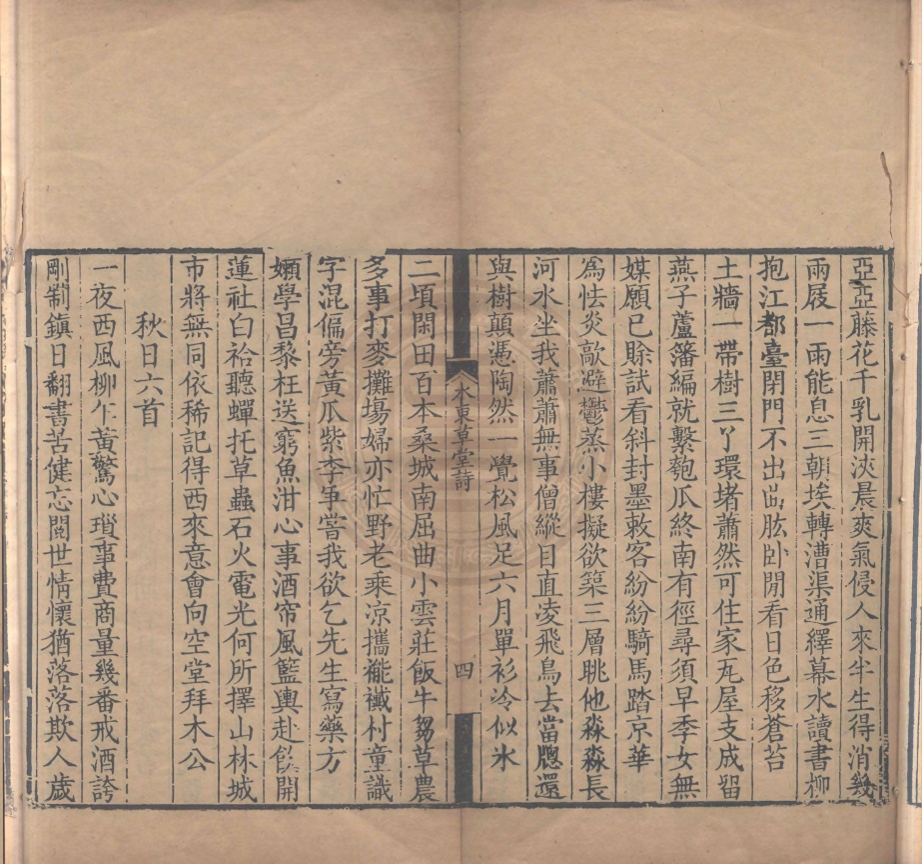 亞亞藤花千乳開浹晨爽氣侵人來半生得消幾
兩屐一雨能息三朝埃轉漕渠通繹幕水讀書柳
抱江都臺閉門不出曲肱卧閒看日色移蒼苔
土牆一帶樹三丫環堵蕭然可住家瓦屋支成留
燕子蘆籓編就繫匏瓜終南有徑尋須早季女無
媒願已賒試看斜封墨敕客紛紛騎馬踏京華
爲怯炎歊避鬱蒸小樓擬欲築三層眺他淼淼長
河水坐我蕭蕭無事僧縱目直凌飛鳥去當牕還
與樹顛憑陶然一覺松風足六月單衫冷似氷
木東草堂詩
四
二頃閑田百本桑城南屈曲小雲莊飯牛芻草農
多事打麥攤場婦亦忙野老乘涼攜褦襶村童識
字混偏旁黃瓜紫李事嘗我欲乞先生寫藥方
嬾學昌黎枉送窮魚泔心事酒帘風籃輿赴飲開
蓮社白袷聽蟬托草蟲石火電光何所擇山林城
市將無同依稀記得西來意會向空堂拜木公
秋日六首
一夜西風柳乍黃驚心瑣事費商量幾番戒酒誇
剛制鎮日翻書苦健忘閱世情懷猶落落欺人歲